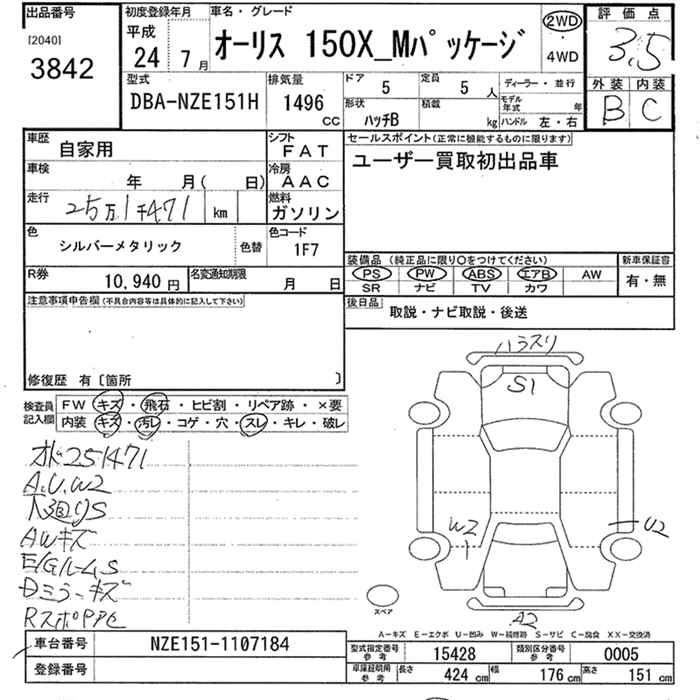 出品番号
[2040]
3842
初度登録年月
平成
24 7 月
車名・グレード
オーリス 150X_Mパッケージ
2WD
・
4WD
評価点
3.5
外装 内装
B C
型式
DBA-NZE151H
排気量
1496
cc
ドア 5
定員 5 人
形状 ハッチB
積載 kg
ディーラー・並行
モデル年式 年
ハンドル 左・右
車歴 自家用
シフト FAT
車検 年 月( 日)
冷房 AAC
走行 25万1千471 km
燃料 ガソリン
色 シルバーメタリック 色替
色コード 1F7
R券 10,940 円
名変通知期限 月 日
セールスポイント(正常に機能するものに限ります)
ユーザー買取初出品車
装備品 (純正品に限り○をつけてください)
PS PW ABS エアB AW
SR ナビ TV カワ
新車保証書
有・無
後日品 取説・ナビ取説・後送
注意事項申告欄(不具合内容等は具体的に記入して下さい)
修復歴 有〔箇所 〕
検査員記入欄
FW キズ・飛石・ヒビ割・リペア跡・×要
内装 キズ・汚レ・コゲ・穴・スレ・キレ・破レ
オド251471
A.U.W2
AWキズ
E/GルームS
Dミラーキズ
ハラスリ
S1
W2
U2
A2
スペア
A−キズ E−エクボ U−凹み W−補修跡 S−サビ C−腐食 XX−交換済
車台番号 NZE151-1107184
登録番号
型式指定番号 参考 15428
類別区分番号 参考 0005
車庫証明用 参考 長さ 424 cm 幅 176 cm 高さ 151 cm